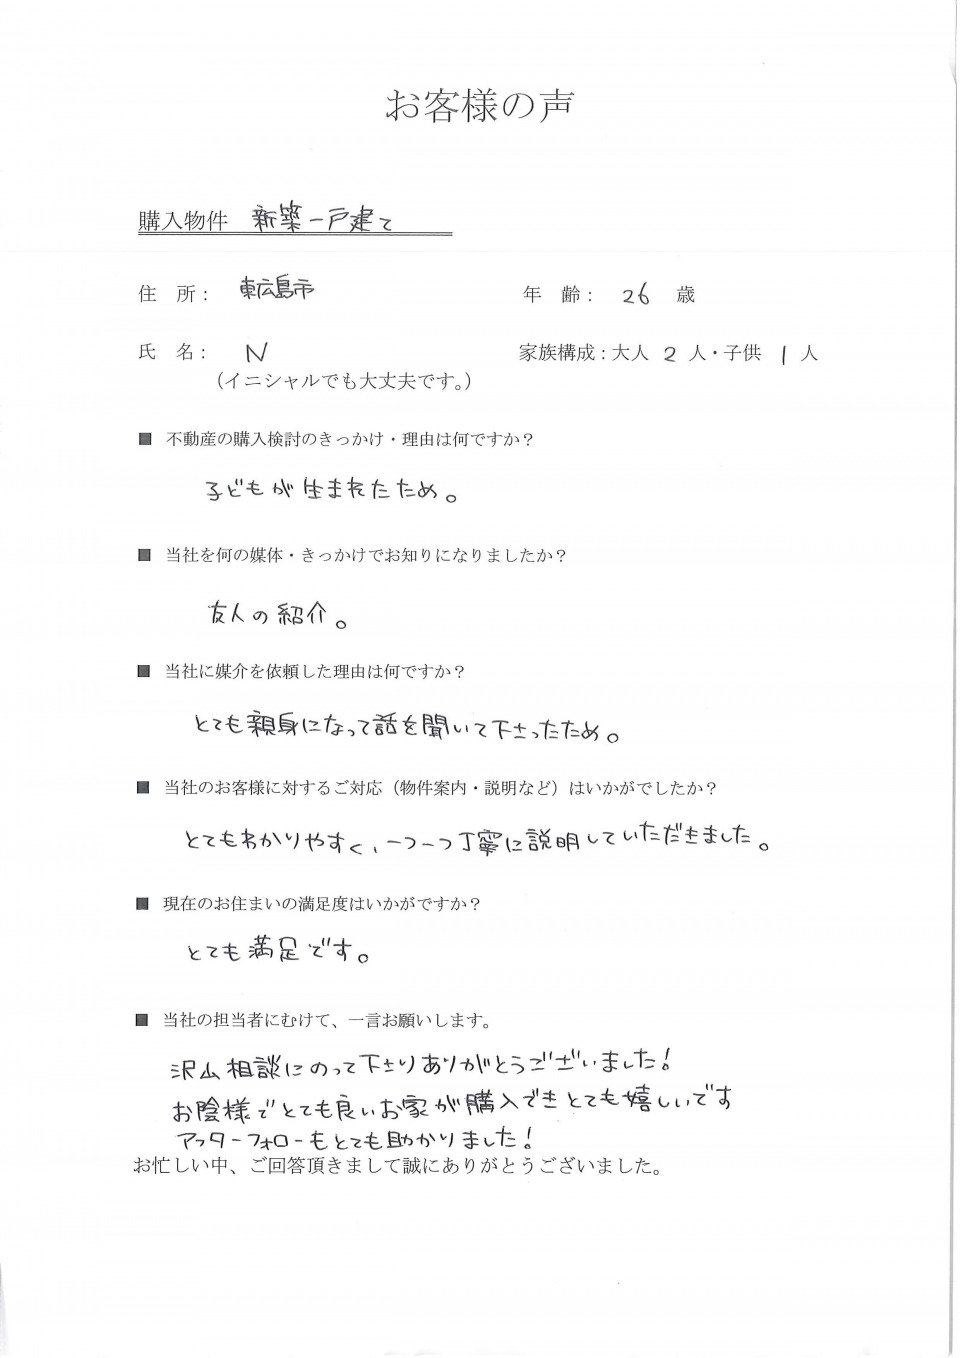 お客様の声
購入物件 新築一戸建て
住 所： 東広島市 年 齢： 26 歳
氏 名： N 家族構成：大人 2 人・子供 1 人
（イニシャルでも大丈夫です。）
■ 不動産の購入検討のきっかけ・理由は何ですか？
子どもが生まれたため。
■ 当社を何の媒体・きっかけでお知りになりましたか？
友人の紹介。
■ 当社に媒介を依頼した理由は何ですか？
とても親身になって話を聞いて下さったため。
■ 当社のお客様に対するご対応（物件案内・説明など）はいかがでしたか？
とてもわかりやすく、一つ一つ丁寧に説明していただきました。
■ 現在のお住まいの満足度はいかがですか？
とても満足です。
■ 当社の担当者にむけて、一言お願いします。
沢山相談にのって下さりありがとうございました！
お陰様でとても良いお家が購入できとても嬉しいです
アフターフォローもとても助かりました！
お忙しい中、ご回答頂きまして誠にありがとうございました。